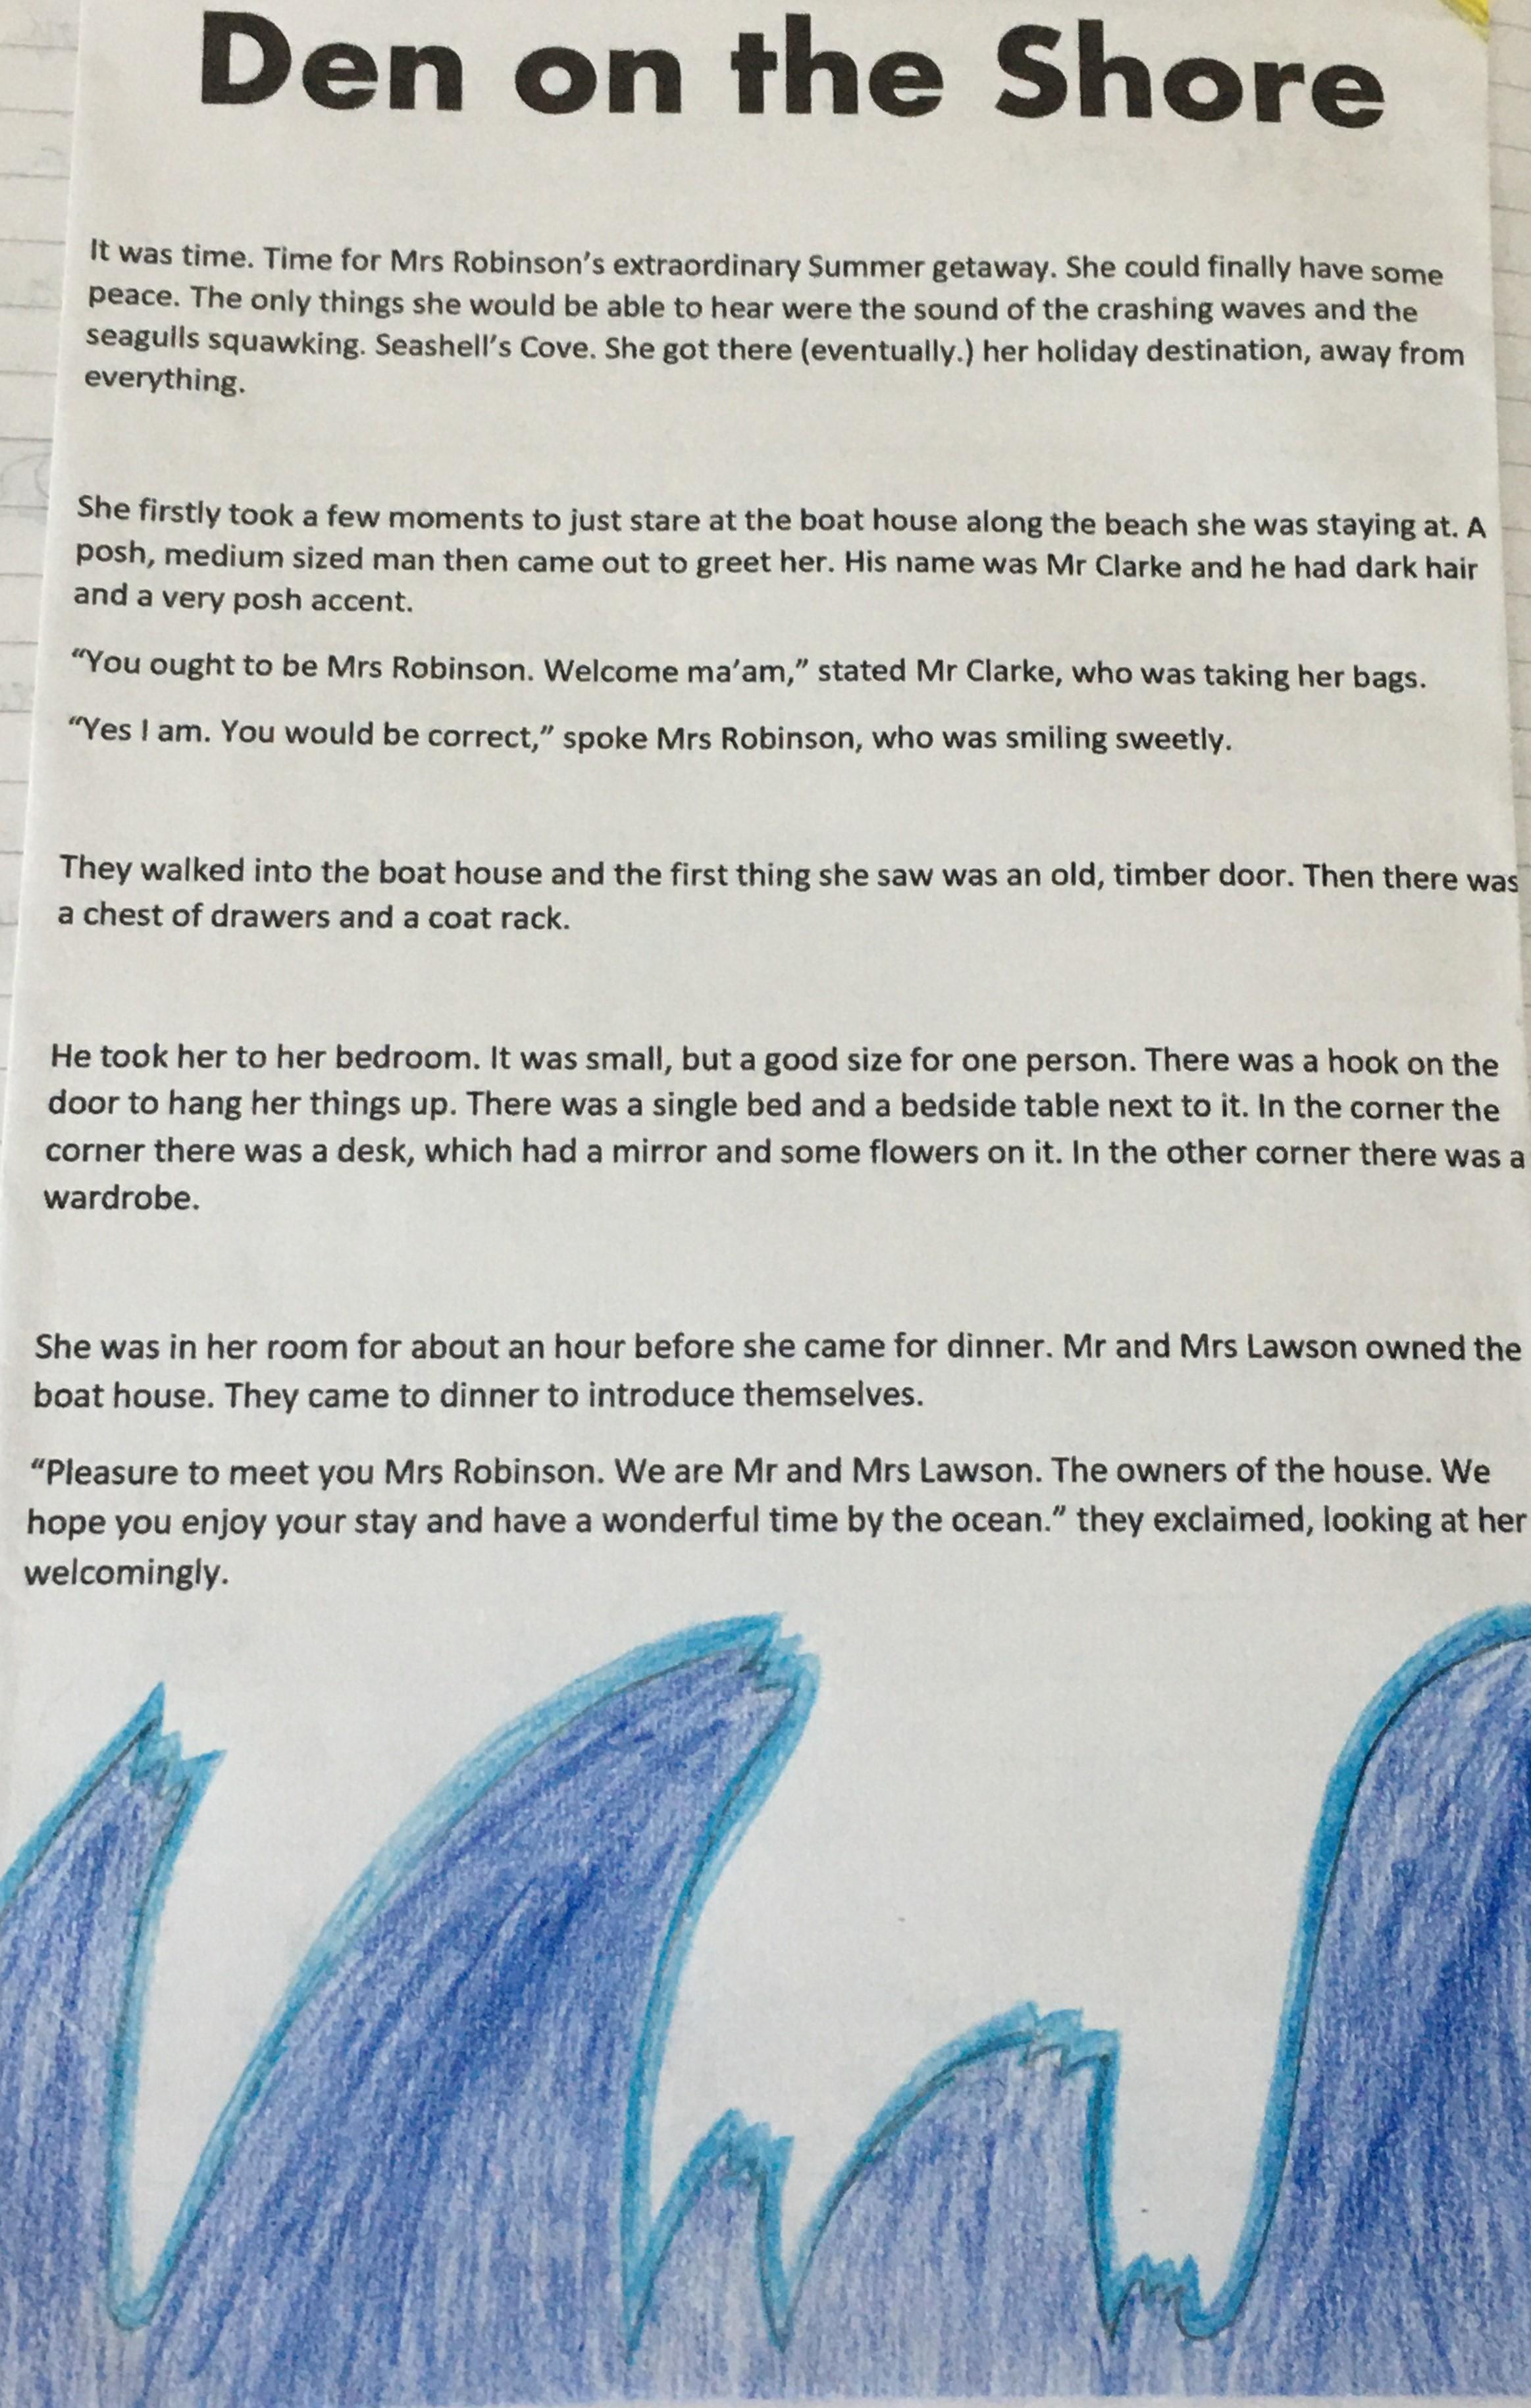 Den on the Shore
It was time. Time for Mrs Robinson’s extraordinary Summer getaway. She could finally have some
peace. The only things she would be able to hear were the sound of the crashing waves and the
seagulls squawking. Seashell’s Cove. She got there (eventually.) her holiday destination, away from
everything.
She firstly took a few moments to just stare at the boat house along the beach she was staying at. A
posh, medium sized man then came out to greet her. His name was Mr Clarke and he had dark hair
and a very posh accent.
“You ought to be Mrs Robinson. Welcome ma’am,” stated Mr Clarke, who was taking her bags.
“Yes I am. You would be correct,” spoke Mrs Robinson, who was smiling sweetly.
They walked into the boat house and the first thing she saw was an old, timber door. Then there was
a chest of drawers and a coat rack.
He took her to her bedroom. It was small, but a good size for one person. There was a hook on the
door to hang her things up. There was a single bed and a bedside table next to it. In the corner the
corner there was a desk, which had a mirror and some flowers on it. In the other corner there was a
wardrobe.
She was in her room for about an hour before she came for dinner. Mr and Mrs Lawson owned the
boat house. They came to dinner to introduce themselves.
“Pleasure to meet you Mrs Robinson. We are Mr and Mrs Lawson. The owners of the house. We
hope you enjoy your stay and have a wonderful time by the ocean.” they exclaimed, looking at her
welcomingly.